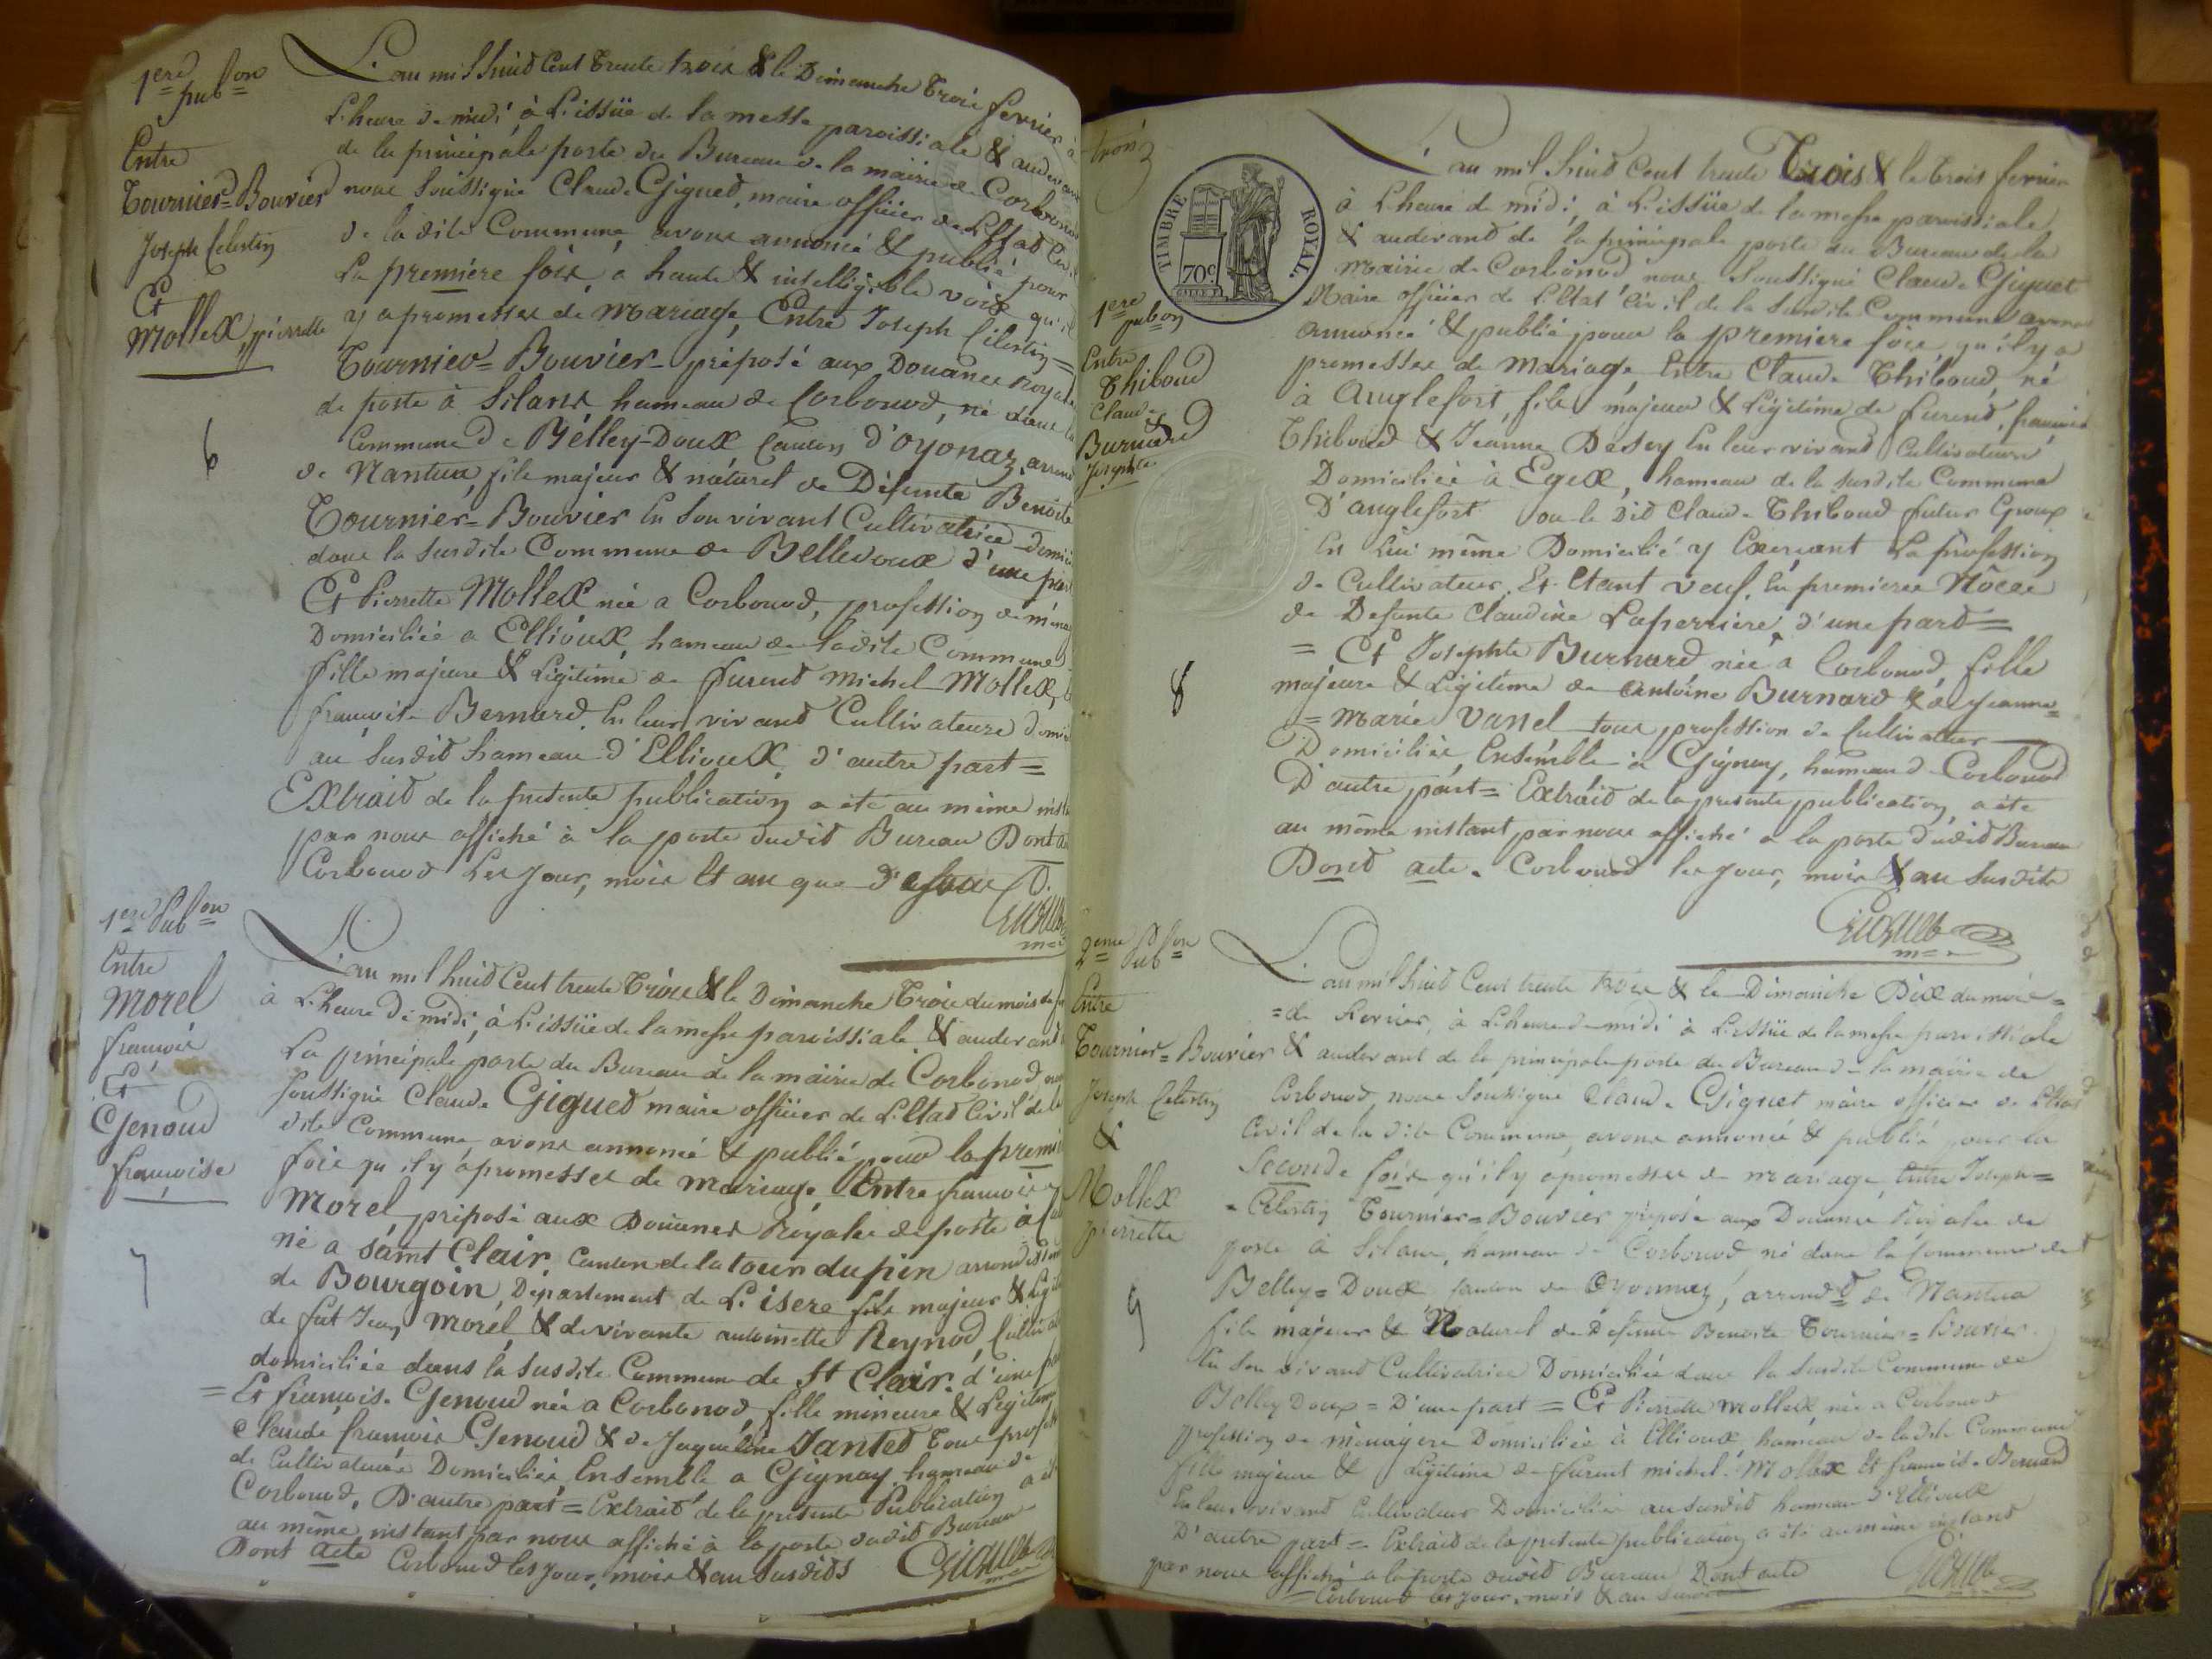 1ere pubon
Entre
Tournier=Bouvier
Joseph Celestin
Et
Mollex, pierrette
6
L'an mil huit Cent trente trois & le Dimanche trois fevrier à
L'heure de midi, à L'issüe de la messe paroissiale & audevant
de la principale porte du Bureau de la mairie de Corbonod
nous Soussigné Claude Giguet, maire officier de L'Etat Civil
de la dite Commune, avons annoncé & publié pour
La premiere fois, a haute & intelligible voix qu'il
y a promesses de Mariage, Entre Joseph Celestin=
Tournier=Bouvier préposé aux Douanes Royales
de poste à Silans, hameau de Corbonod, né dans la
Commune de Belley-Doux, Canton d'oyonaz, arrond
de Nantua, fils majeur & naturel de Défunte Benoite
Tournier=Bouvier En Son vivant Cultivatrice domici
dans la Susdite Commune de Belledoux d'une part
Et Pierrette Mollex née a Corbonod, profession de ména
Domiciliée a Ellioux, hameau de ladite Commune
fille majeure & Légitime de furent Michel Mollex, &
françoise Bernard, En leur vivand Cultivateurs domi
au Susdit hameau d'Ellioux, d'autre part=
Extrait de la presente publication a été au même inst
par nous affiché à la porte dudit Bureau Dont a
Corbonod Les Jour, mois Et an que D'
Giguet
1ere Pubon
Entre
Morel
françois
Et
Genoud
françoise
7
L'an mil huit Cent trente Trois & le Dimanche Trois du mois de fe
à L'heure de midi, à L'issüe de la messe paroissiale & audevant
La principale porte du Bureau de la mairie de Corbonod nous
Soussigné Claude Giguet maire officier de L'Etat Civil de la
dite Commune avons annoncé & publié pour la premi
fois qu'il y a promesses de mariage Entre françois
Morel, préposé aux Douanes Royales de poste à
né a Saint Clair, Canton de la tour du pin arrondissem
de Bourgoin, Département de L'isere fils majeur & Légit
de fut Jean Morel & de vivante antoinette Reynod, Cultivat
domiciliés dans la Susdite Commune de St Clair. d'une pa
= Et françoise Genoud née a Corbonod, fille mineure & Légitime
Claude françois Genoud & de Jaqueline Jantet Tous profes
de Cultivateurs Domiciliés Ensemble a Gignay hameau de
Corbonod, D'autre part = Extrait de la présente Publication a été
au même instant par nous affiché à la porte dudit Bureau
Dont acte Corbonod les Jour, mois & an Susdits
Giguet
trois
TIMBRE ROYAL.
70c
1ere pubon
Entre
Thiboud
Claude
&
Burnard
Josephte
8
L'an mil huit Cent trente Trois & le trois fevrier
à L'heure de midi, à L'issüe de la messe paroissiale
& audevand de la principale porte du Bureau de la
Mairie de Corbonod nous Soussigné Claude Giguet
Maire officier de L'Etat Civil de la Susdite Commune avons
annoncé & publié pour la premiere fois qu'il y a
promesses de Mariage Entre Claude Thiboud, né
à Anglefort, fils majeur & Légitime de furent, françois
Thiboud & Jeanne Desey En leur vivand Cultivateurs
Domiciliés à Egex, hameau de la Susdite Commune
D'anglefort ou le Dit Claude Thiboud futur Epoux
Est Lui même Domicilié y Exerçant La profession
de Cultivateur. Et Etant veuf, En premieres Nôces
de Defunte Claudine Laperriere, d'une part=
= Et Josephte Burnard, née à Corbonod, fille
majeure & Légitime de Antoine Burnard & de Jeanne=
= Marie Vanel tous profession de Cultivateur
Domiciliés, Ensemble à Gignay, hameau de Corbonod
D'autre part = Extrait de la presente publication, a été
au même instant par nous affiché a la porte dudit Bureau
Dont acte. Corbonod les jour, mois & an Susdits
Giguet
2eme Pubon
Entre
Tournier=Bouvier
Joseph Celestin
&
Mollex
pierrette
9
L'an mil huit Cent trente trois & le Dimanche Dix du mois=
=de Fevrier, à L'heure de midi à L'issüe de la messe paroissiale
& audevant de la principale porte du Bureau de la mairie de
Corbonod, nous Soussigné Claude Giguet maire officier de L'Etat
Civil de la dite Commune, avons annoncé & publié pour la
Seconde fois qu'il y a promesses de mariage, Entre Joseph=
=Celestin Tournier=Bouvier préposé aux Douanes Royales de
poste à Silans, hameau de Corbonod né dans la Commune de
Belley=Doux Canton de Oyonnaz, arrondt de Nantua
fils majeur & Naturel de Défunte Benoite Tournier=Bouvier.
En Son vivand Cultivatrice Domiciliée dans la Susdite Commune de
Belley Doux = D'une part = Et Pierrette Mollex née a Corbonod
profession de ménagere Domiciliée à Ellioux, hameau de ladite Commune
fille majeure & Légitime de furent michel Mollex Et françoise Bernard
En leur vivand Cultivateur Domiciliés au Susdit hameau d'Ellioux
D'autre part = Extrait de la présente publication a été au même instant
par nous affiché a la porte dudit Bureau Dont acte
Corbonod les jour, mois & an Susdits
Giguet